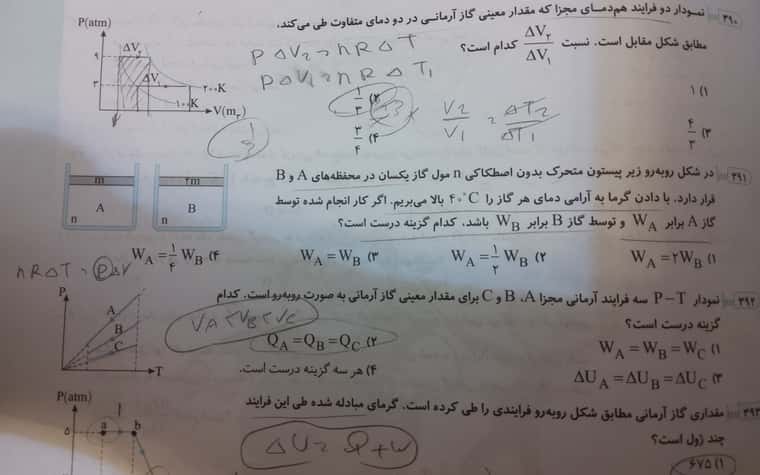 ۳۹۰ نمودار دو فرایند هم‌دمـای مجزا که مقدار معینی گاز آرمانـی در دو دمای متفاوت طی می‌کند،
مطابق شکل مقابل است. نسبت ΔV₂/ΔV₁ کدام است؟
P(atm)
۹ ΔV₂
۳ ΔV₁
۲۰۰K
۱۰۰K
V(m³)
PΔV₂ = nRΔT
PΔV₁ = nRΔT₁
V2/V1 = ΔT2/ΔT1
۱) ۱
۲) ۱/۳
۳) ۴/۳
۴) ۳/۴
۳۹۱ در شکل روبه‌رو زیر پیستون متحرک بدون اصطکاکی n مول گاز یکسان در محفظه‌های A و B
قرار دارد. با دادن گرما به آرامی دمای هر گاز را ۴۰°C بالا می‌بریم. اگر کار انجام شده توسط
گاز A برابر W_A و توسط گاز B برابر W_B باشد، کدام گزینه درست است؟
m ۲m
A B
n n
۱) W_A = ۲W_B
۲) W_A = ۱/۲ W_B
۳) W_A = W_B
۴) W_A = ۱/۴ W_B
nRΔT = PΔV
۳۹۲ نمودار P-T سه فرایند آرمانی مجزا A، B و C برای مقدار معینی گاز آرمانی به صورت روبه‌رو است. کدام
گزینه درست است؟
P
A
B
C
T
VA < VB < VC
۱) W_A = W_B = W_C
۲) Q_A = Q_B = Q_C
۳) ΔU_A = ΔU_B = ΔU_C
۴) هر سه گزینه درست است.
۳۹۳ مقداری گاز آرمانی مطابق شکل روبه‌رو فرایندی را طی کرده است. گرمای مبادله شده طی این فرایند
چند ژول است؟
P(atm)
۵ a b
ΔU = Q + W
۱) ۶۷۵